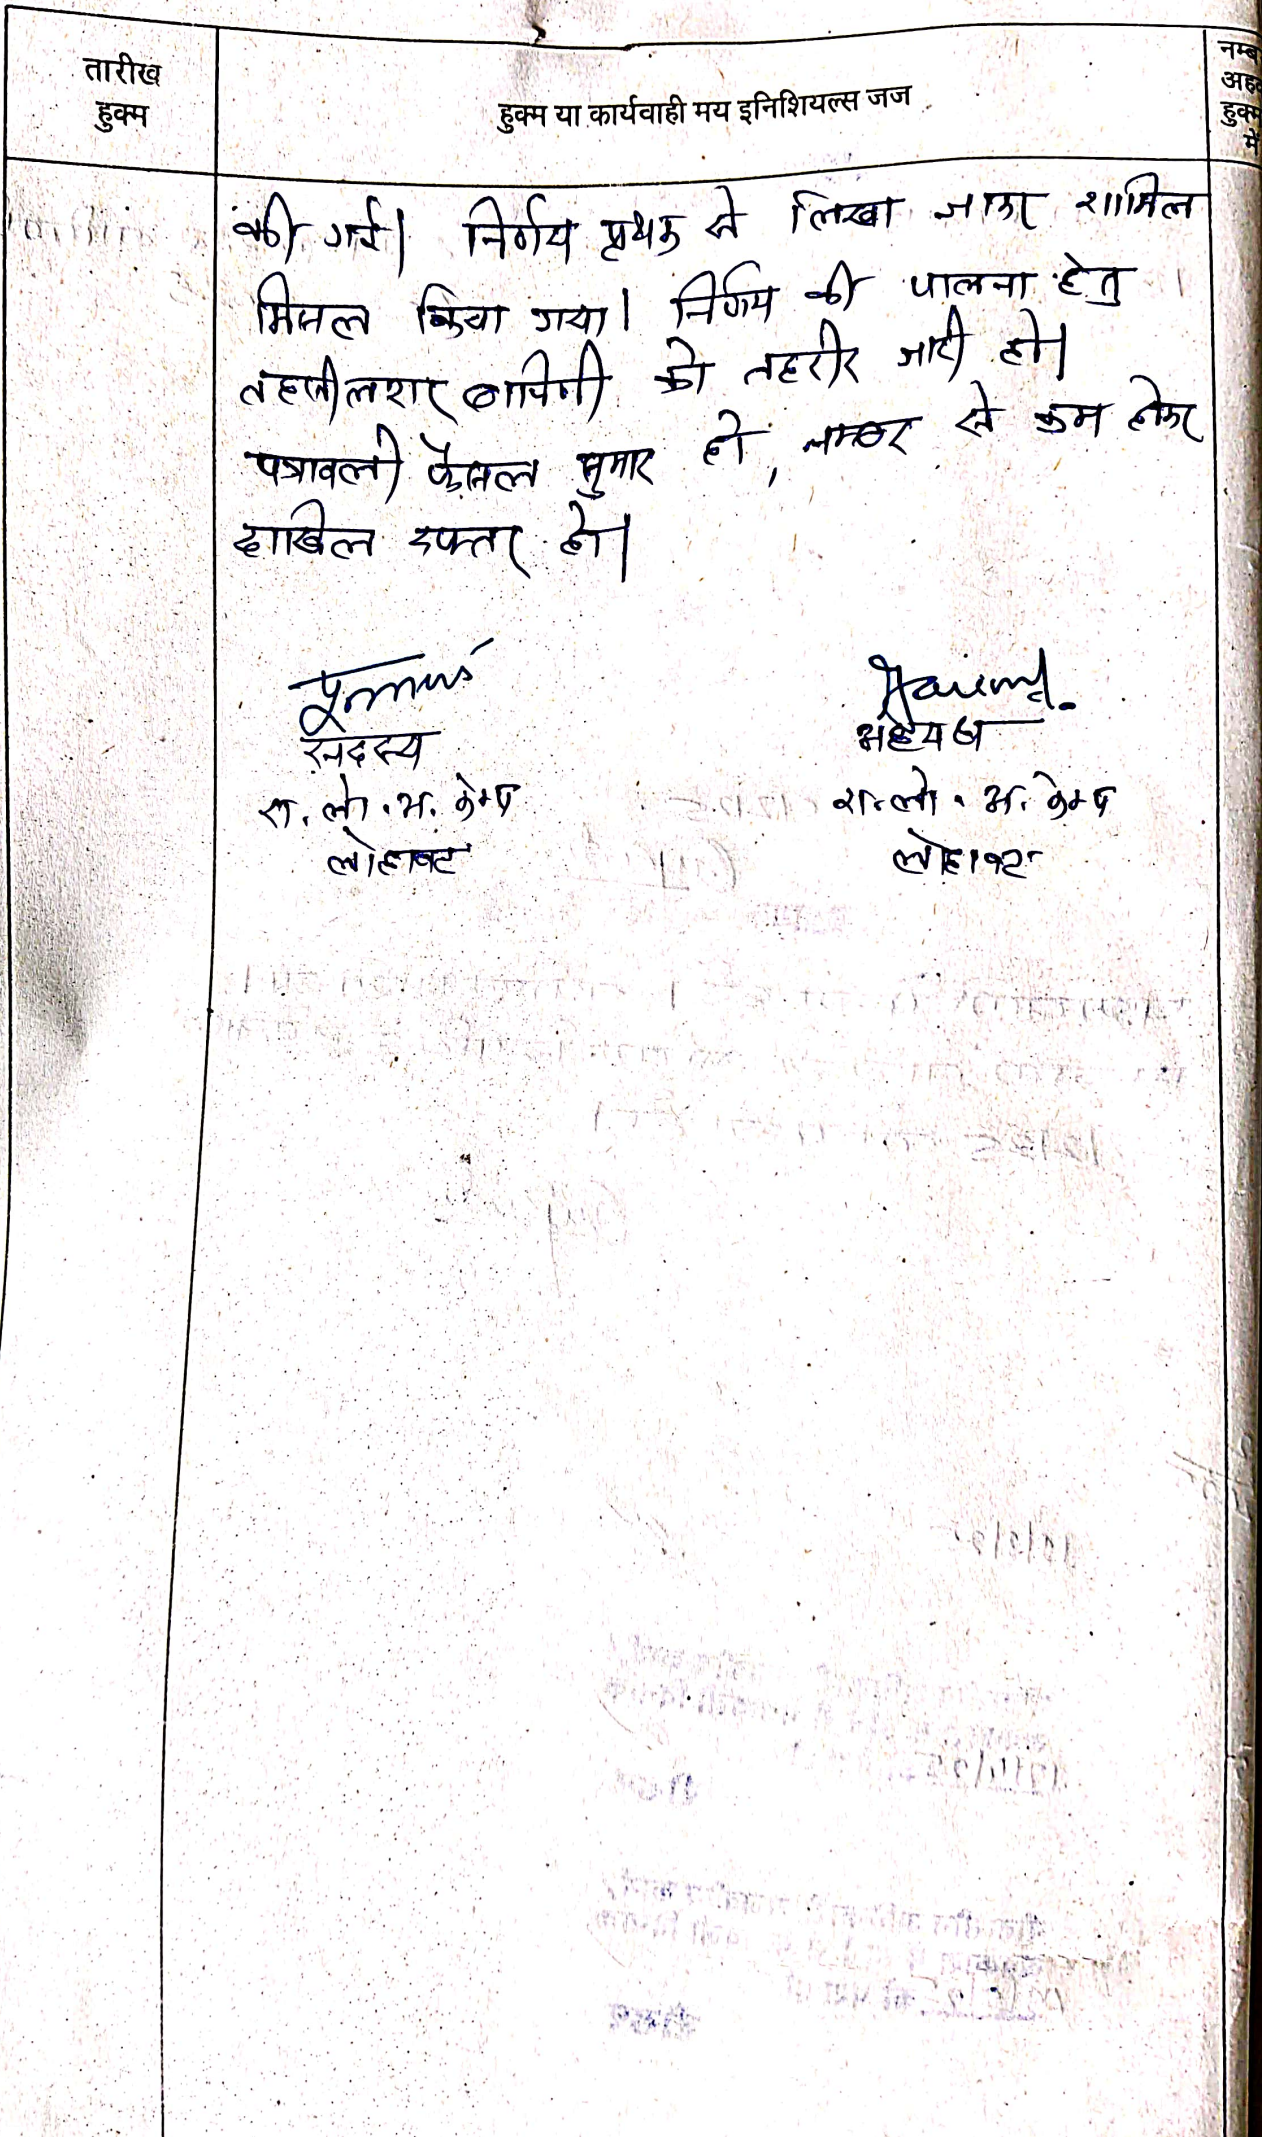 तारीख
हुक्म
हुक्म या कार्यवाही मय इनिशियल्स जज
नम्ब
अह
हुक्म
में
की गई। निर्णय पृथक से लिखा जाकर शामिल
मिसल किया गया। निर्णय की पालना हेतु
तहसीलदार बापिणी को तहरीर जारी हो।
पत्रावली फैसल सुमार हो, नम्बर से कम होकर
दाखिल दफ्तर हो।
सदस्य
अध्यक्ष
रा. लो. अ. केम्प
रा. लो. अ. केम्प
लोहावट
लोहावट